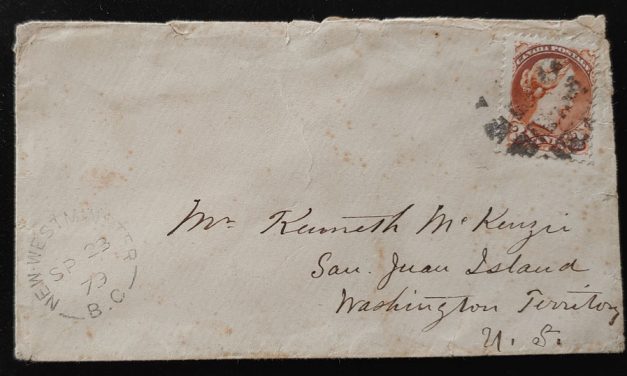 CANADA POSTAGE
Mr Kenneth McKenzie
San Juan Island
Washington Territory
U. S.
NEW-WESTMINSTER
SP 23
79
B.C